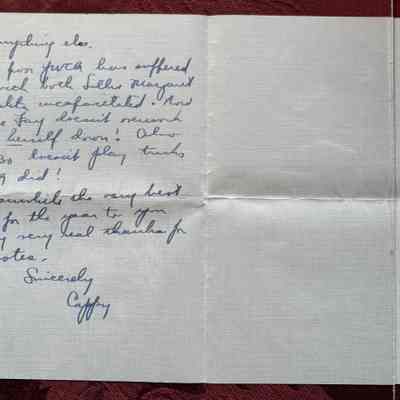 anything else.
for YWCA has suffered
with both Sallie Margaret
incapacitated. Now
Fay doesn't overwork
herself down! Also
doesn't play tricks
did!
meanwhile the very best
for the year to you
very real thanks for
notes.
Sincerely
Cappy